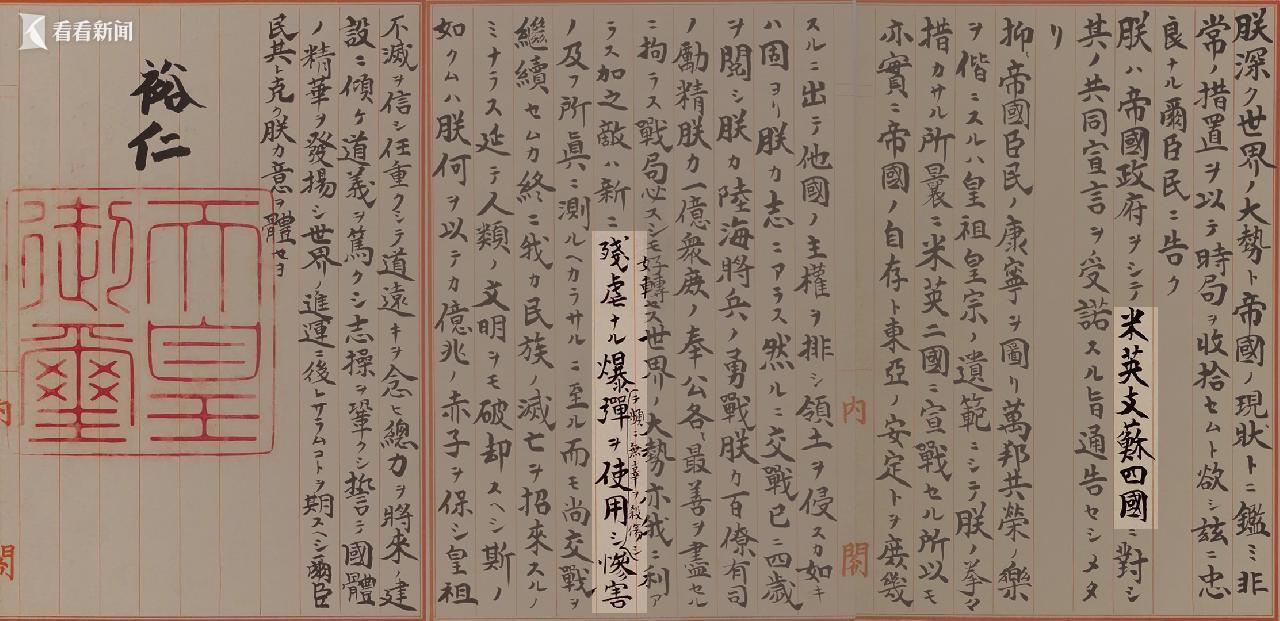 看看新闻
朕深ク世界ノ大勢ト帝國ノ現狀トニ鑑ミ非
常ノ措置ヲ以テ時局ヲ收拾セムト欲シ茲ニ忠
良ナル爾臣民ニ告ク
朕ハ帝國政府ヲシテ米英支蘇四國ニ對シ
其ノ共同宣言ヲ受諾スル旨通告セシメタ
リ
抑〻帝國臣民ノ康寧ヲ圖リ萬邦共榮ノ樂
ヲ偕ニスルハ皇祖皇宗ノ遺範ニシテ朕ノ拳々
措カサル所曩ニ米英二國ニ宣戰セル所以モ
亦實ニ帝國ノ自存ト東亞ノ安定トヲ庶幾
内閣
スルニ出テ他國ノ主權ヲ排シ領土ヲ侵スカ如キ
ハ固ヨリ朕カ志ニアラス然ルニ交戰已ニ四歳
ヲ閱シ朕カ陸海將兵ノ勇戰朕カ百僚有司
ノ勵精朕カ一億衆庶ノ奉公各〻最善ヲ盡セル
ニ拘ラス戰局必スシモ好轉セス世界ノ大勢亦我ニ利ア
ラス加之敵ハ新ニ殘虐ナル爆彈ヲ使用シテ頻ニ無辜ヲ殺傷シ慘害
ノ及フ所眞ニ測ルヘカラサルニ至ル而モ尚交戰ヲ
繼續セムカ終ニ我カ民族ノ滅亡ヲ招來スルノ
ミナラス延テ人類ノ文明ヲモ破却スヘシ斯ノ
如クムハ朕何ヲ以テカ億兆ノ赤子ヲ保シ皇祖
不滅ヲ信シ任重クシテ道遠キヲ念ヒ總力ヲ將來ノ建
設ニ傾ケ道義ヲ篤クシ志操ヲ鞏クシ誓テ國體
ノ精華ヲ發揚シ世界ノ進運ニ後レサラムコトヲ期スヘシ爾臣
民其レ克ク朕カ意ヲ體セヨ
裕仁
天皇
御璽
内閣